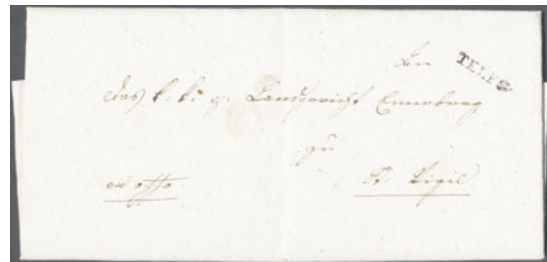 An
TELFS
das k. k. g. Landgericht Enneberg
zu
ex offo
St. Vigil